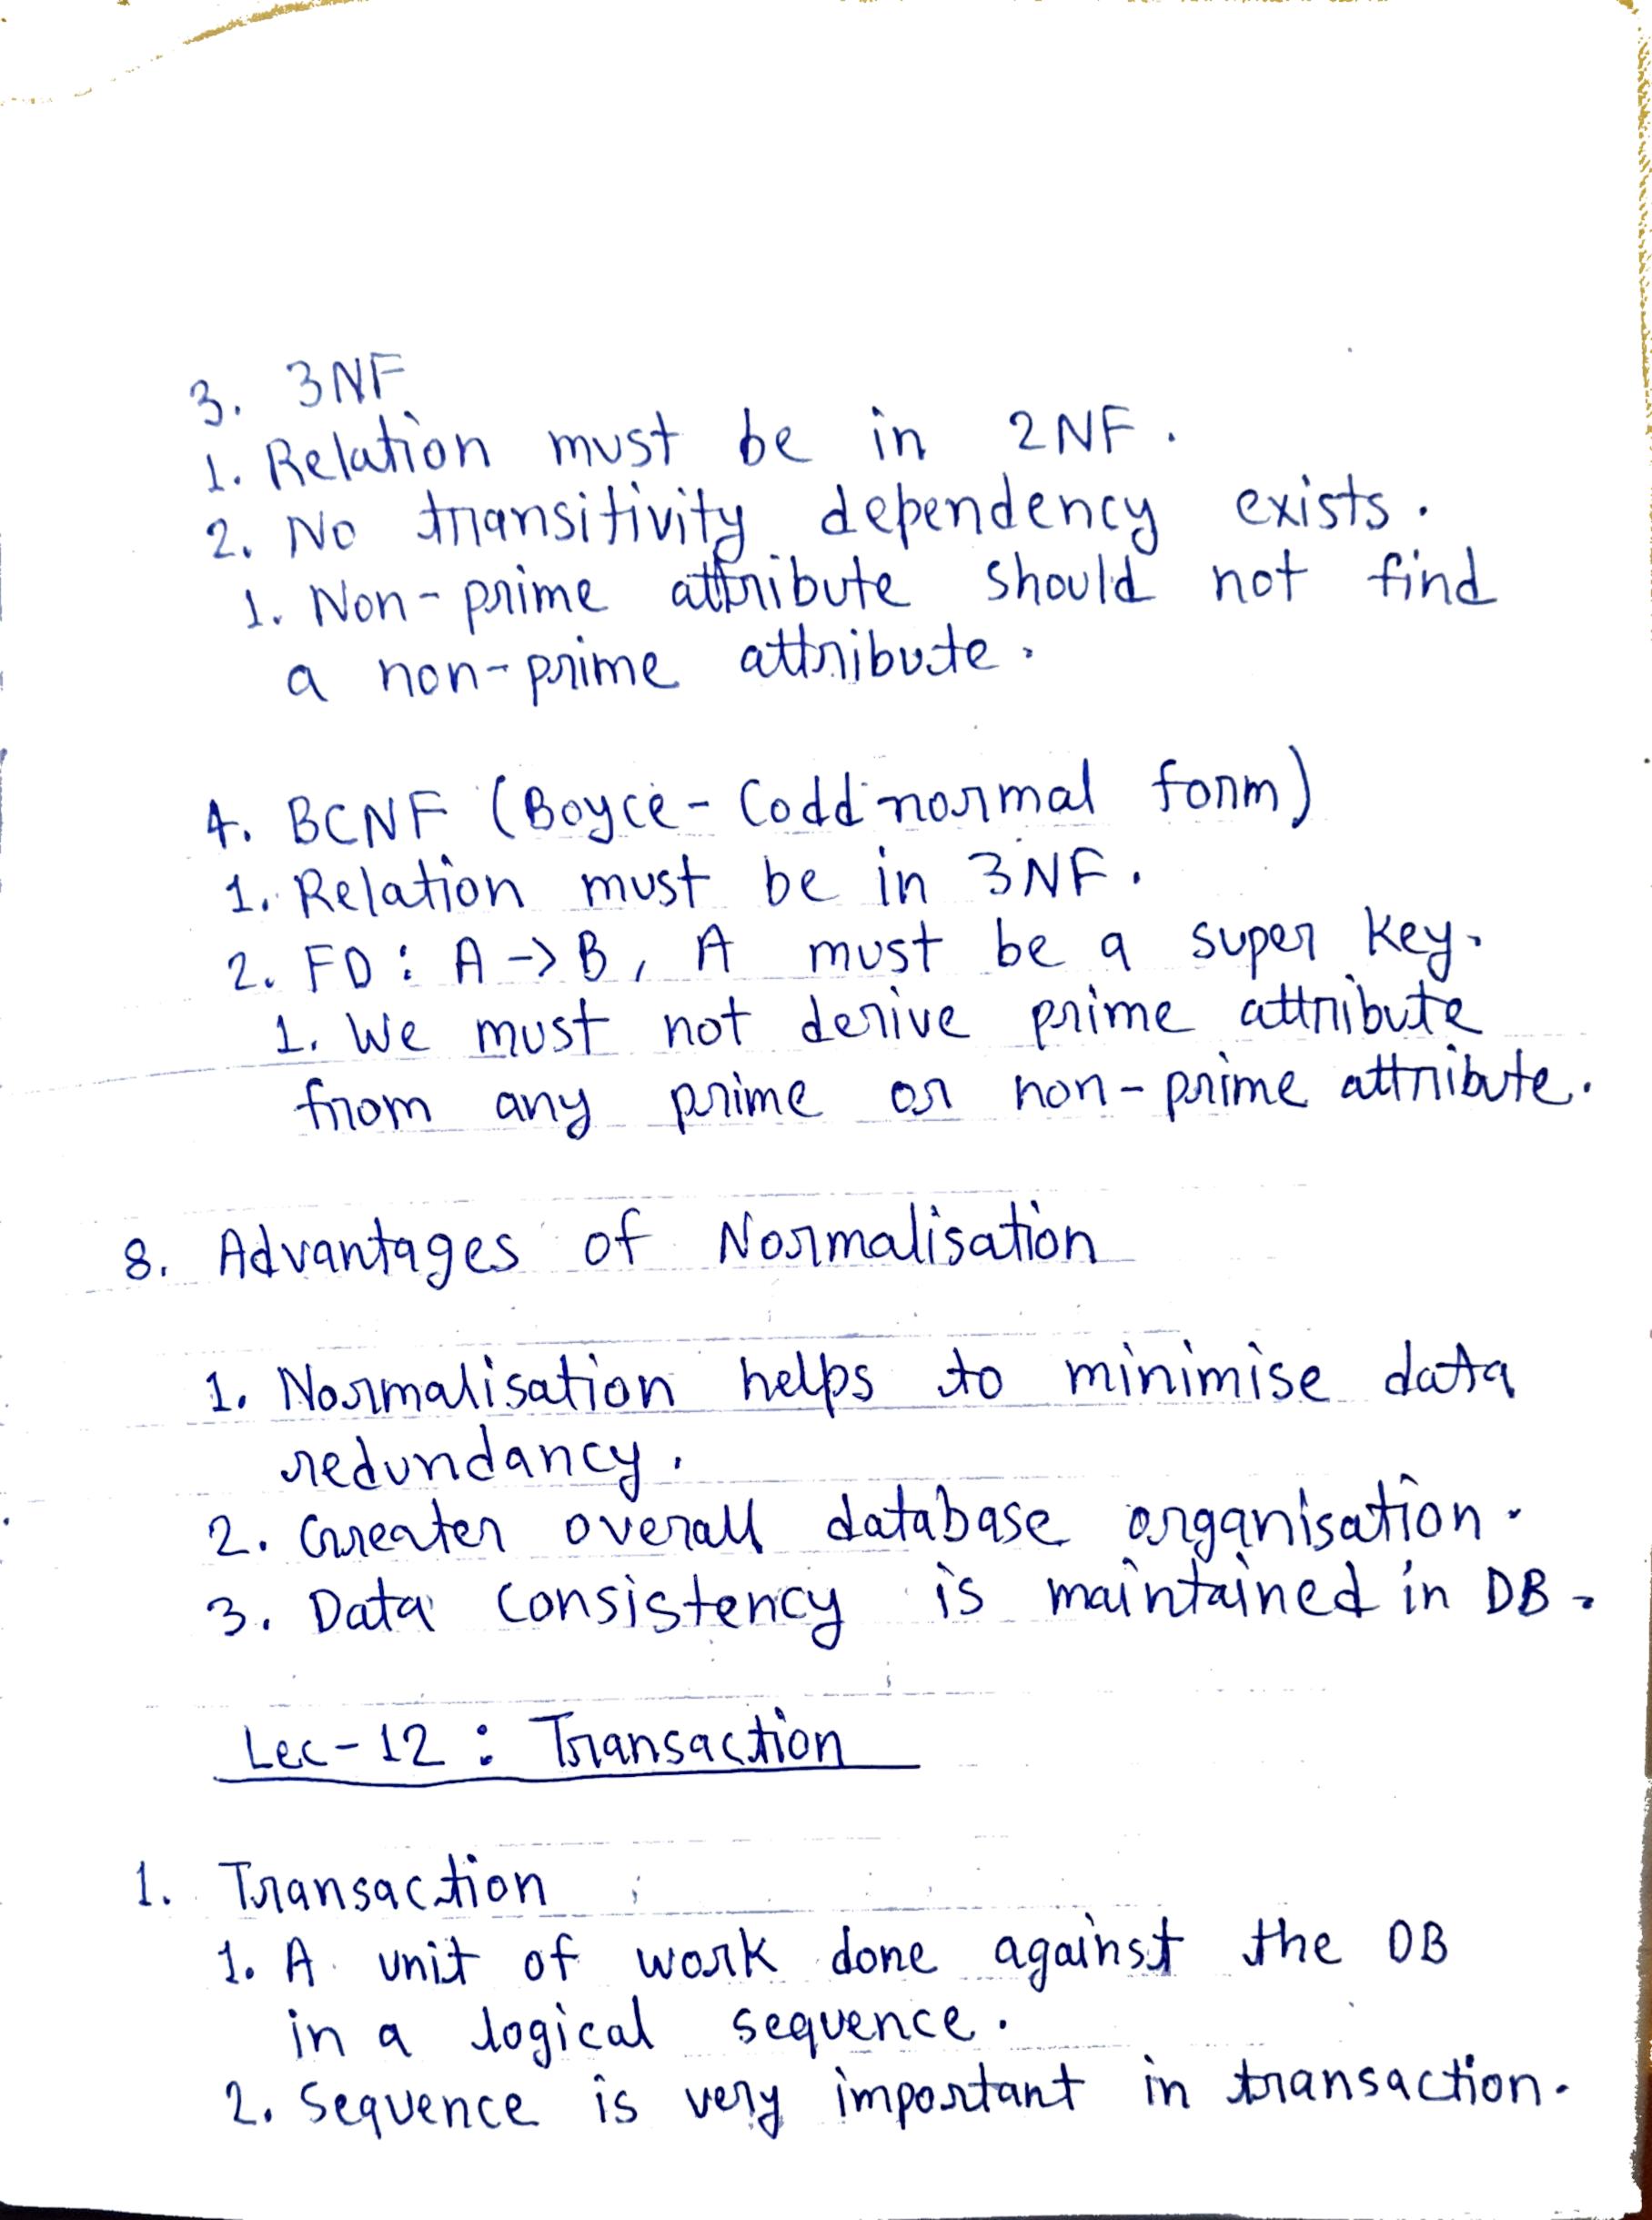 3. 3NF
1. Relation must be in 2NF.
2. No transitivity dependency exists.
1. Non-prime attribute should not find
a non-prime attribute.
4. BCNF (Boyce-Codd normal form)
1. Relation must be in 3NF.
2. FD: A -> B, A must be a super key.
1. We must not derive prime attribute
from any prime or non-prime attribute.
8. Advantages of Normalisation
1. Normalisation helps to minimise data
redundancy.
2. Greater overall database organisation.
3. Data consistency is maintained in DB.
Lec-12: Transaction
1. Transaction
1. A unit of work done against the DB
in a logical sequence.
2. Sequence is very important in transaction.